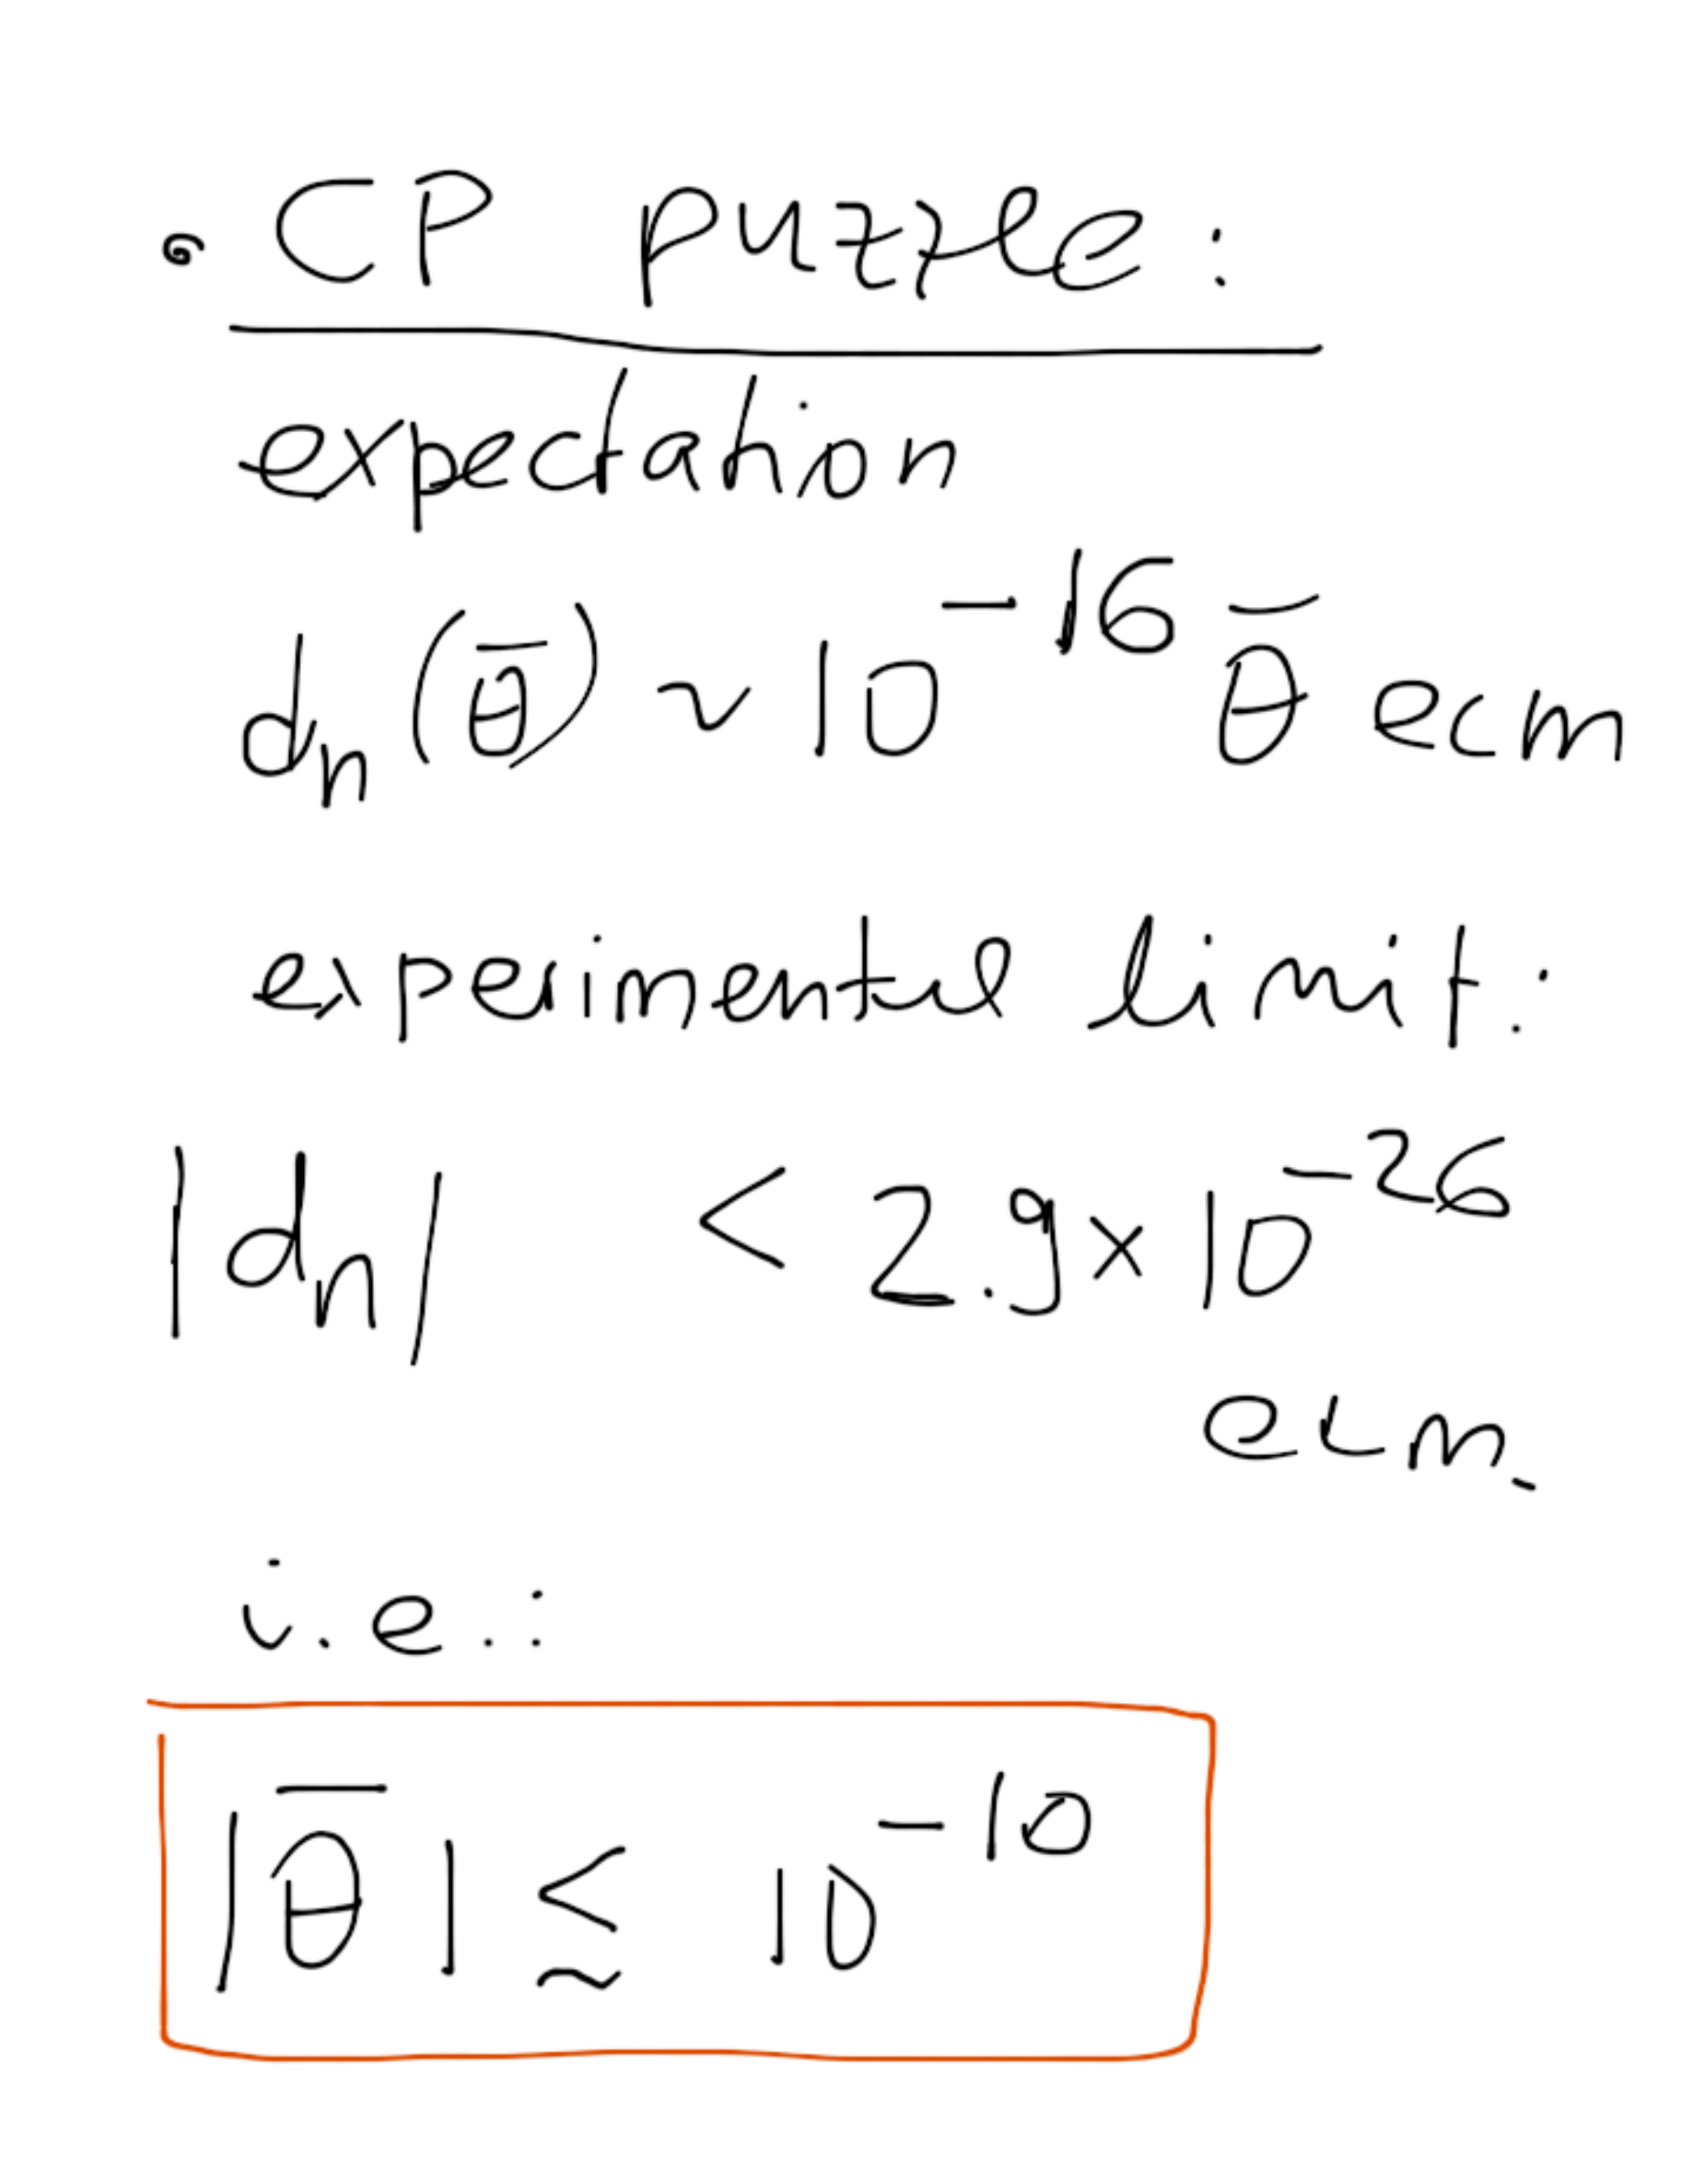 • CP puzzle:
expectation
dₙ(θ̄) ~ 10⁻¹⁶ θ̄ ecm
experimental limit:
|dₙ| < 2.9×10⁻²⁶
ecm.
i.e.:
|θ̄| ≲ 10⁻¹⁰